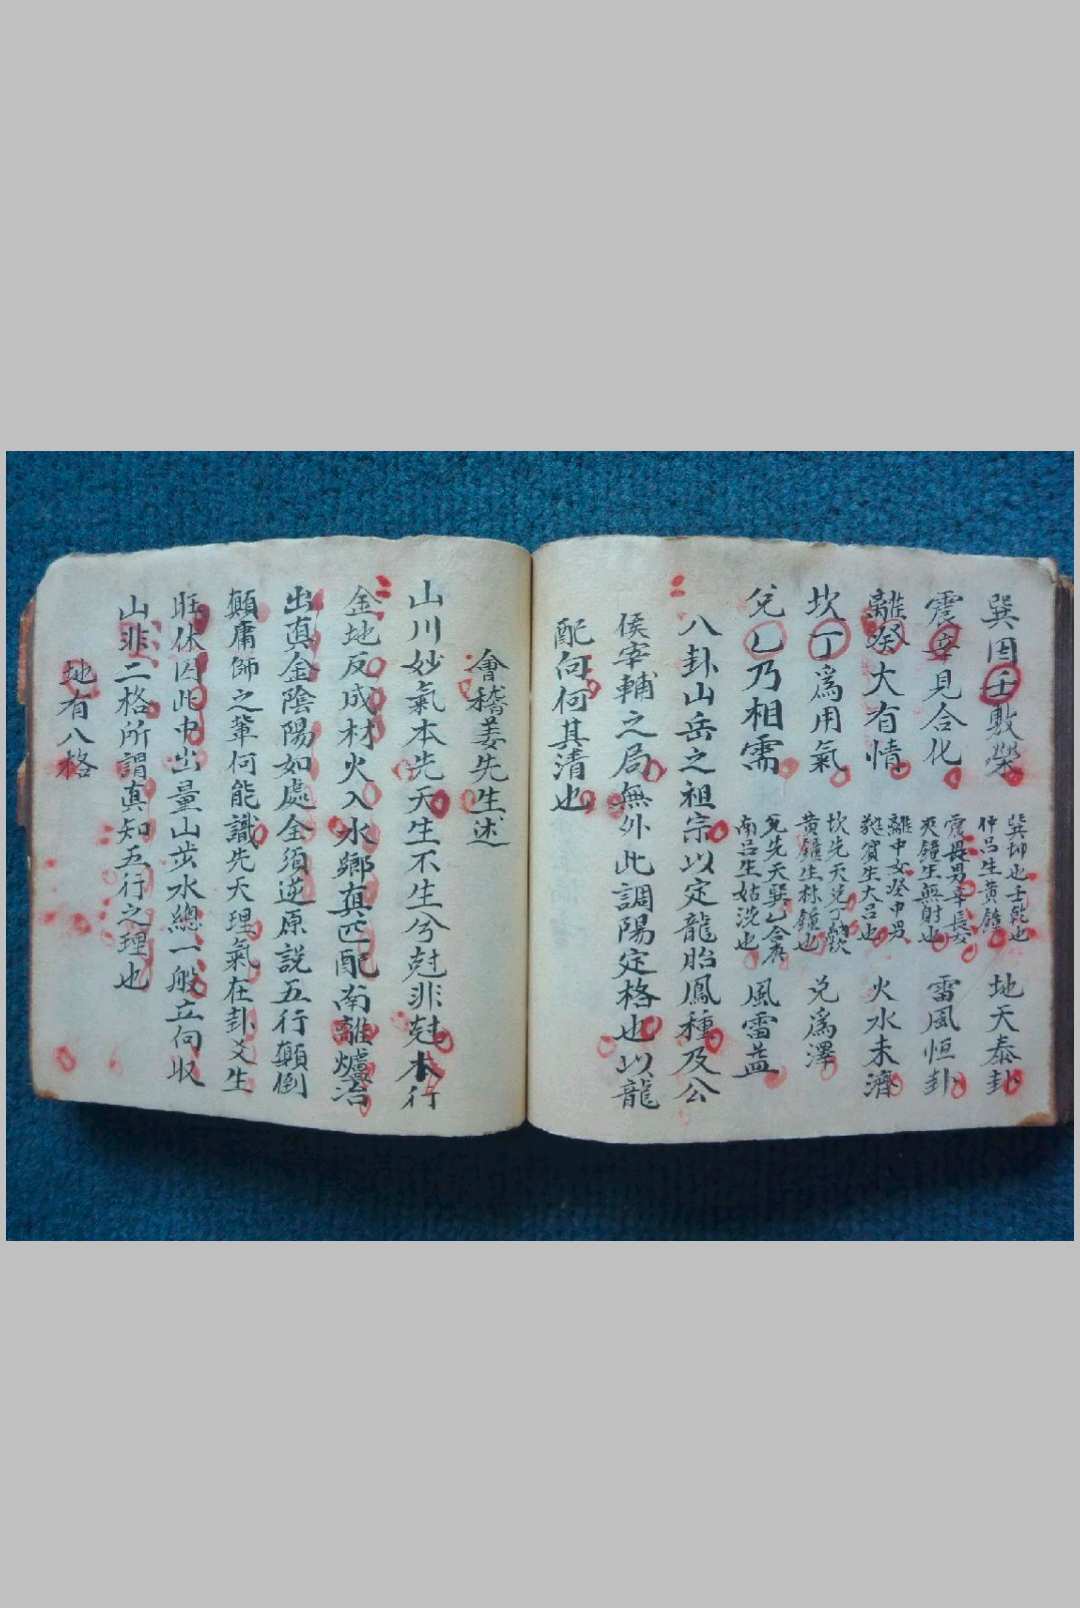 巽因壬敷榮
巽坤也壬乾也
仲呂生黃鐘
地天泰卦
震辛見合化
震長男辛長女
夾鐘生無射也
雷風恒卦
離癸大有情
離中女癸中男
蕤賓生大呂也
火水未濟
坎丁爲用氣
坎先天兌丁納兌
黃鐘生林鐘也
兌爲澤
兌乙乃相需
兌先天巽乙合
南呂生姑洗也
風雷益
八卦山岳之祖宗以定龍胎鳳種及公
侯宰輔之局無外此調陽定格也以龍
配向何其清也
會稽姜先生述
山川妙氣本先天生不生兮尅非尅木行
金地反成材火入水鄉真匹配南離爐冶
出真金陰陽如處全須逆原說五行顛倒
顛庸師之輩何能識先天理氣在卦爻生
旺休囚此中出量山步水總一般立向収
山非二格所謂真知五行之理也
地有八格